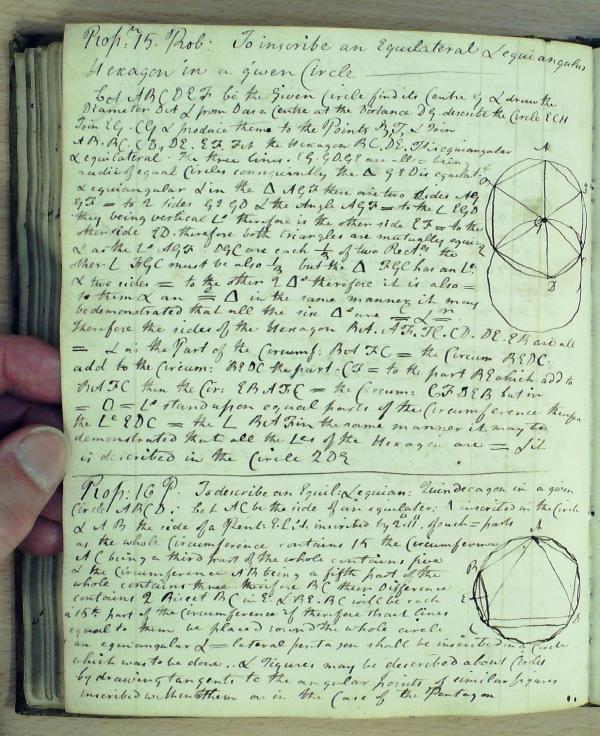 Prop.n 15. Prob: To inscribe an Equilateral & equiangular
Hexagon in a given Circle
Let ABCDEF be the Given Circle find its Centre G & draw the
Diameter & from D as a Centre at the Distance DG describe the Circle ECH
Join EG. CG & produce them to the Points B, F, & Join
AB. BC. CD, DE. EF. FA the Hexagon BC, DE. F is equiangular
& equilateral. The three lines. EG. GD GE are all = being
radii of equal Circles consequently the Δ GED is equilat:
& equiangular & in the Δ AGF there are two sides AG
GF = to 2 sides GE GD & the Angle AGF = to the L EGD
they being vertical Ls therefore is the other side EF = to the
other side ED. therefore both triangles are mutually equiang
& as the Ls AGF DGC are each 1/3 of two Rect Ls the
other L FGC must be also 1/3 but the Δ FGC has an L
& two sides = to the other 2 Δs therefore it is also =
to them & an = Δ in the same manner it may
be demonstrated that all the six Δs are = & =
Therefore the sides of the Hexagon BA. AF. FC. CD. DE. EB are all
= & as the Part of the Circumf: BAFC = the Circum BEDC.
add to the Circum: BEDC the part CF = to the part BE which add to
BAFC then the Cir: EBAFC = the Circum: CFDEB but in
= O = Ls stand upon equal parts of the Circumference therefore
the L EDC = the L BAF in the same manner it may be
demonstrated that all the Les of the Hexagon are = & it
is described in the Circle 2DE
Prop: 16 P. To describe an Equil: & equian: Quindecagon in a given
Circle ABCD; Let AC be the side of an equilater: Δ inscribed in the Circle
& AB the side of a Pent: inscribed by 2. 11. of such = parts
as the whole Circumference contains 15 the Circumference
AC being a third part of the whole contains five
& the Circumference AB being a fifth part of the
whole contains three therefore BC their Difference
contains 2 Bisect BC in E & BE. EC will be each
a 15th part of the Circumference if therefore strait lines
equal to them be placed round the whole circle
an equiangular & = lateral pentagon shall be inscribed in a Circle
which was to be done .. & Figures may be described about Circles
by drawing tangents to the angular points of similar figures
inscribed within them as in the Case of the Pentagon